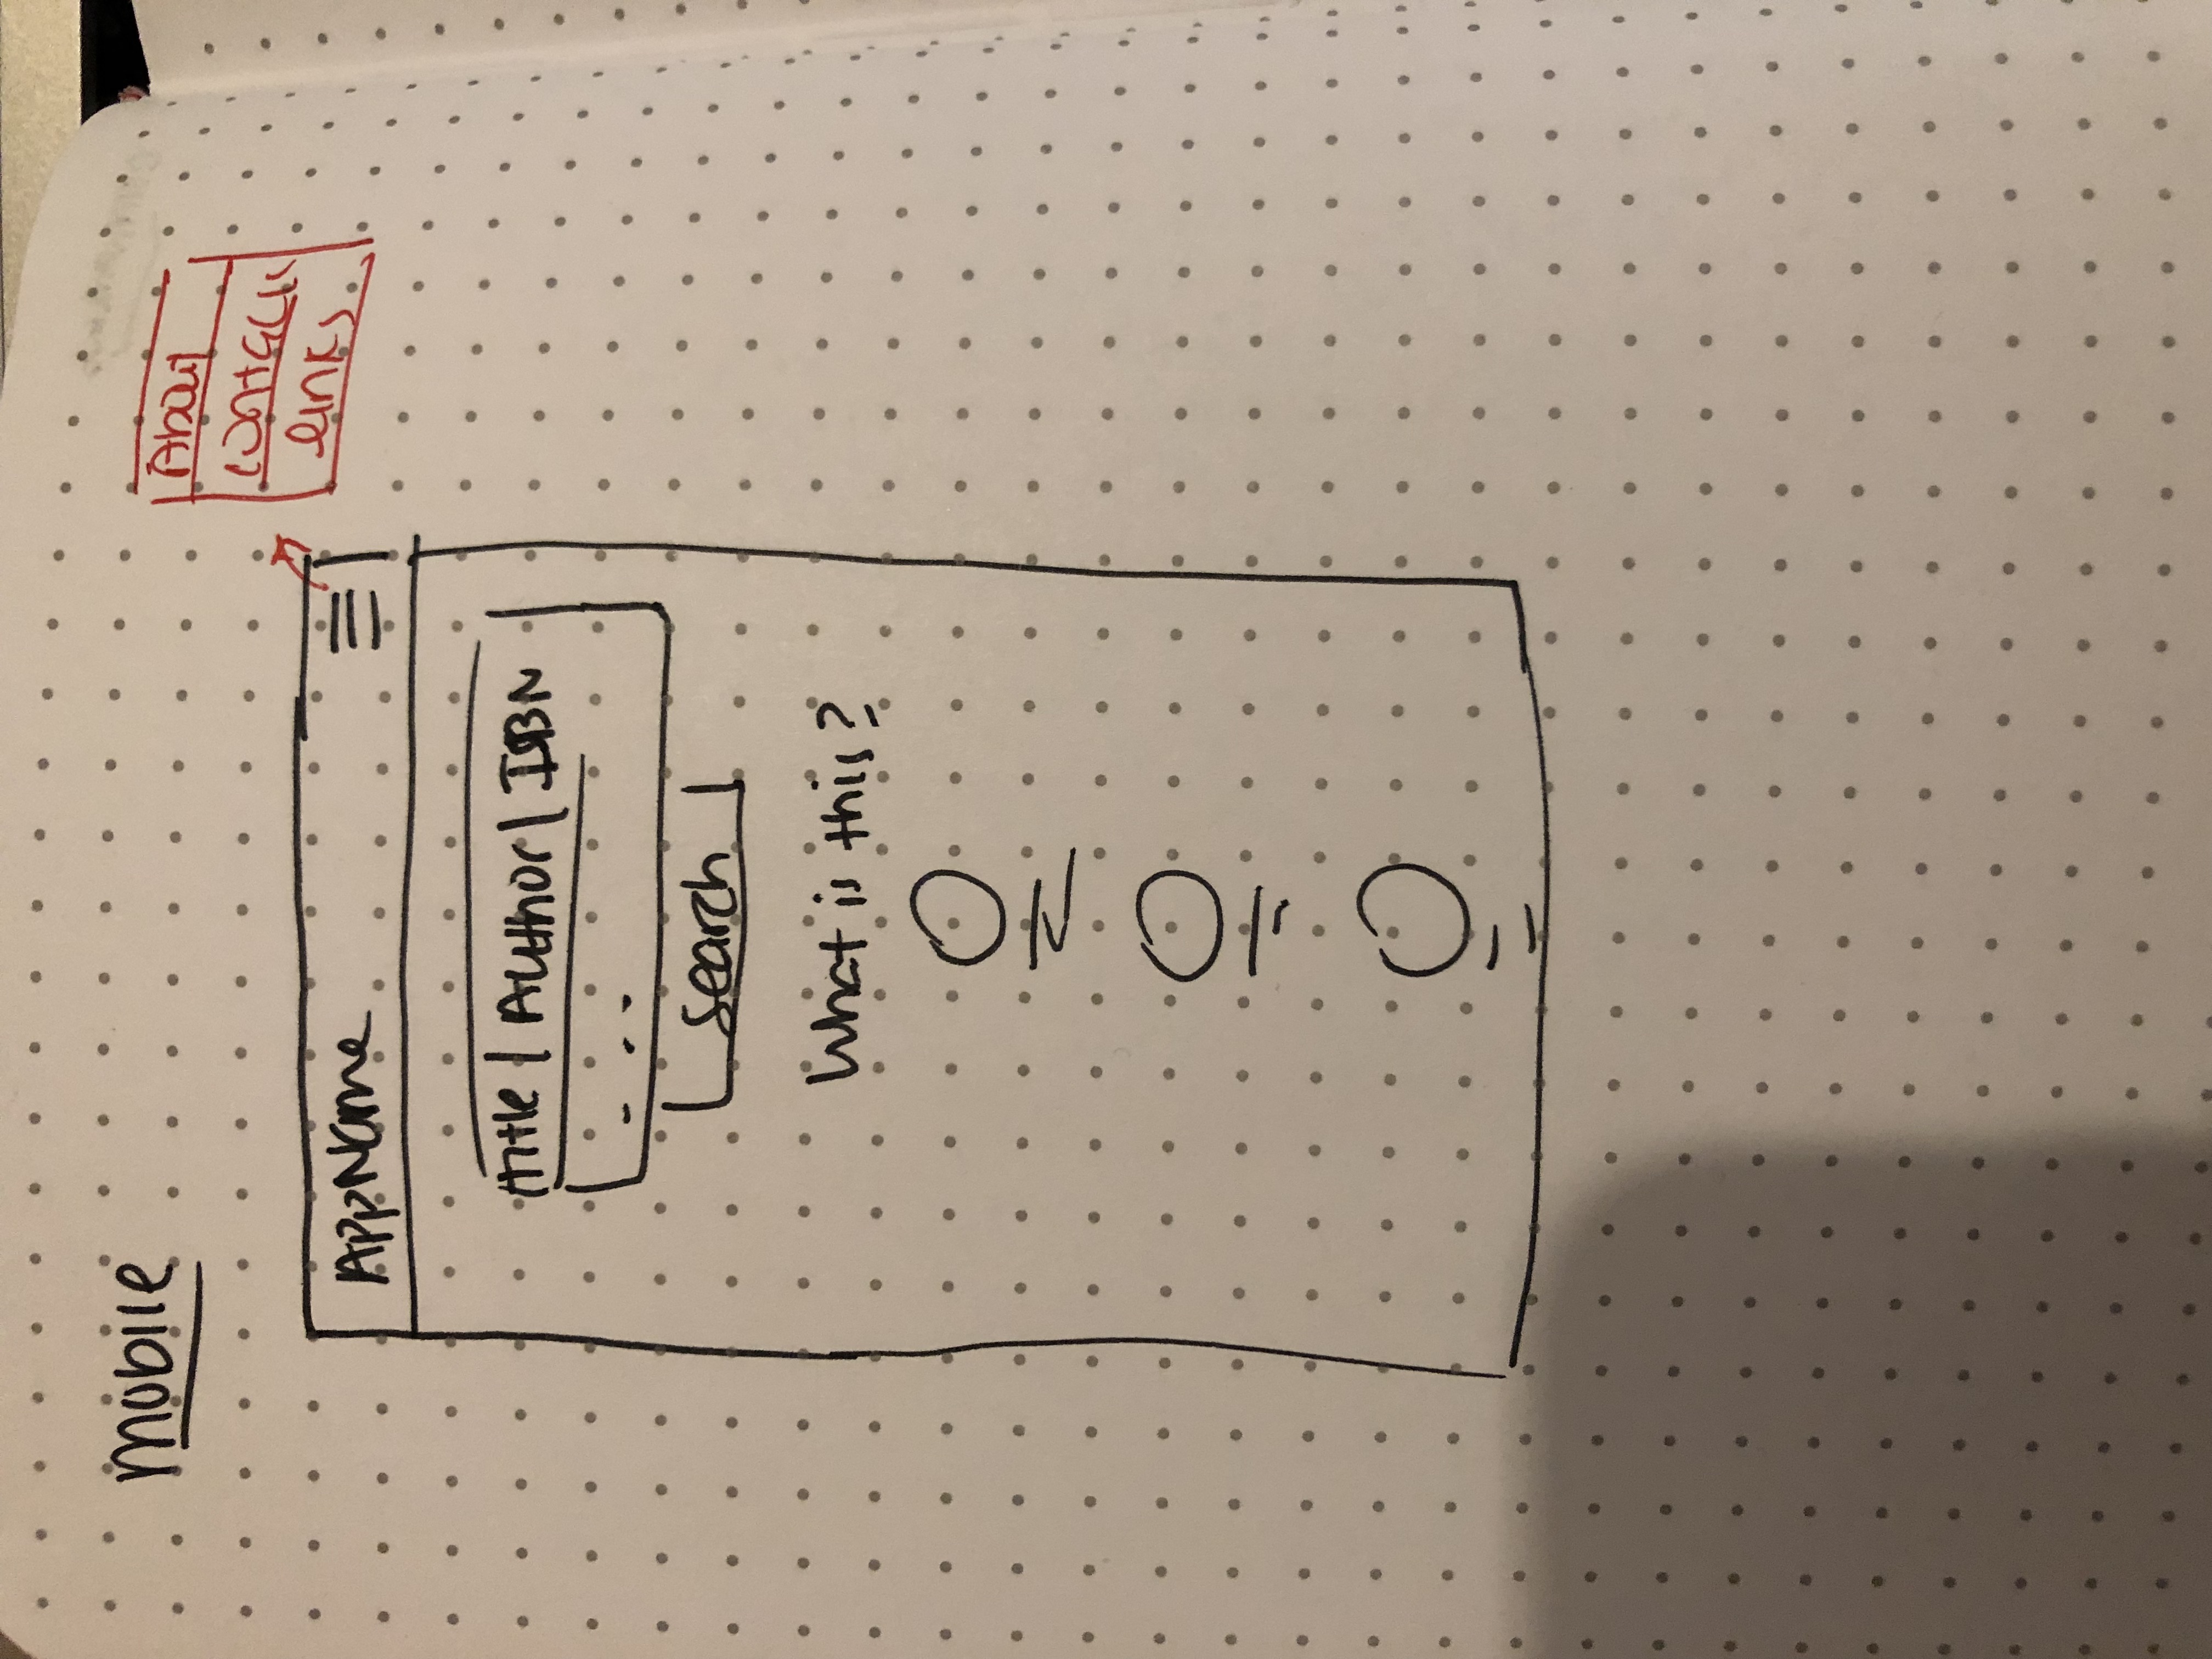 mobile
About
contact
links
AppName
title | Author | ISBN
- - -
Search
What is this?